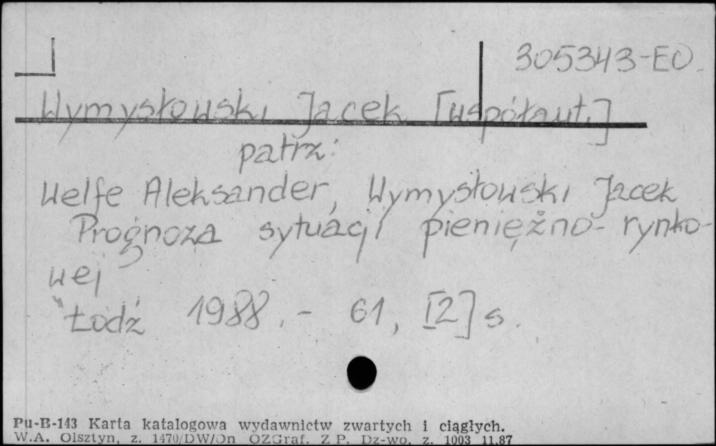 305343-EO.
Wymysłowski Jacek [współaut.]
patrz:
Welfe Aleksander, Wymysłowski Jacek
Prognoza sytuacji pieniężno-rynko-
wej
Łódź 1988. - 61, [2] s.
Pu-B-143 Karta katalogowa wydawnictw zwartych i ciągłych.
W.A. Olsztyn, z. 1470/DW/Dn OZGraf. Z.P. Dz-wo, z. 1003 11.87